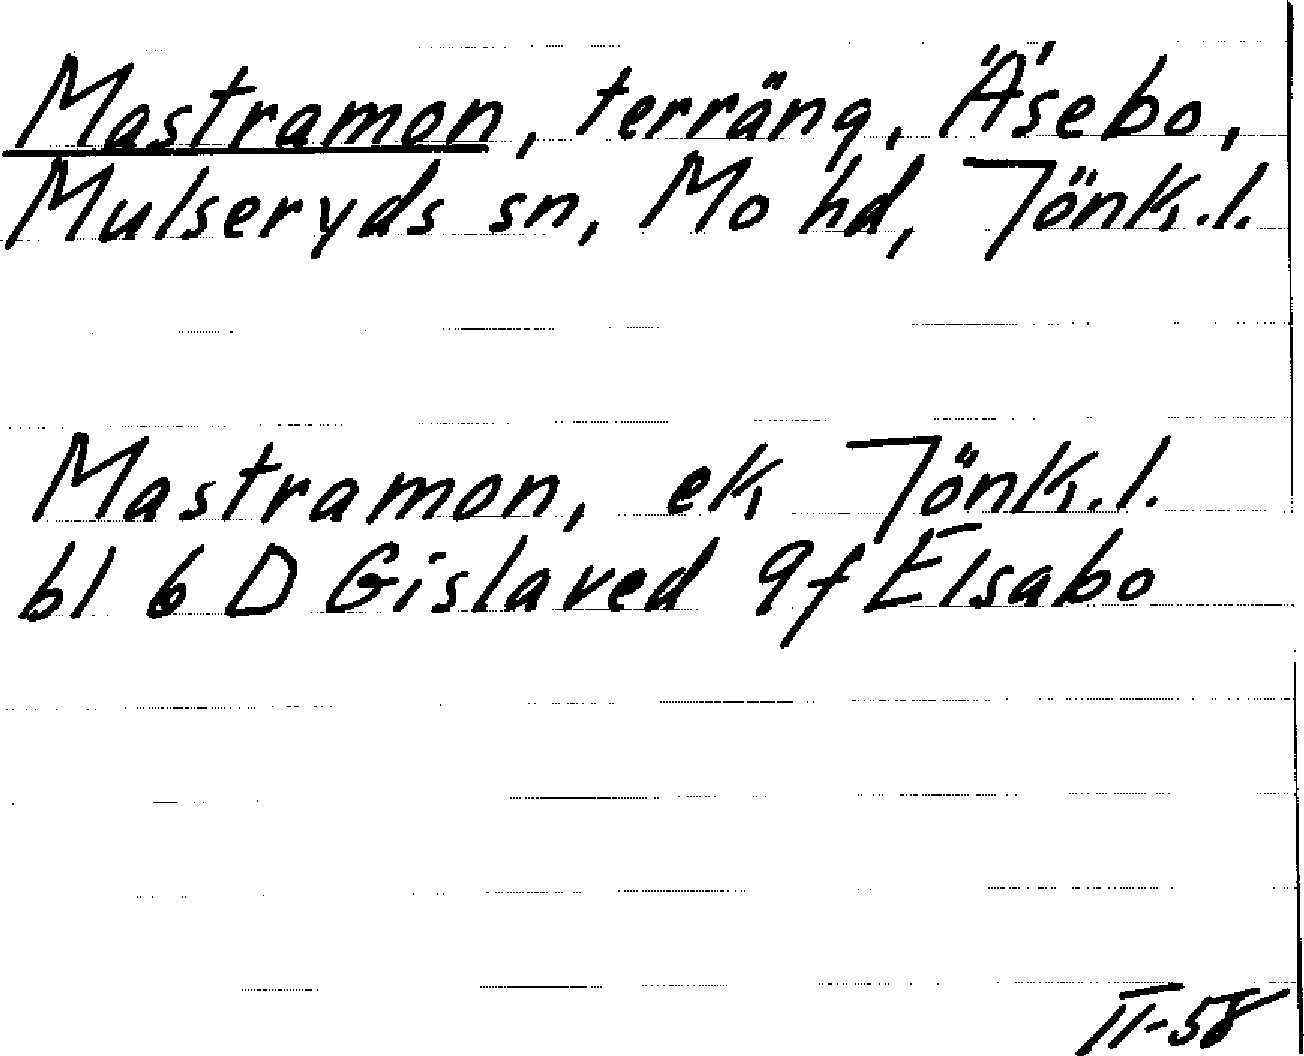 Mastramon, terräng, Äsebo,
Mulseryds sn, Mo hd, Jönk.l.
Mastramon, ek Jönk.l.
bl 6 D Gislaved 9f Elsabo
II-58